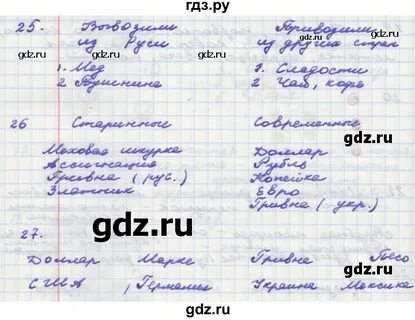 гдз.ру
25. Вывозили Привозили
из Руси из других стран
1. Мёд 1. Сладости
2 Пушнина 2 Чай, кофе
26 Старинные Современные
Меховая шкурка Доллар
Ассигнация Рубль
Гривна (рус.) Копейка
Златник Евро
Гривна (укр.)
27.
Доллар Марка Гривна Песо
США , Германия Украина Мексика
gdz.ru gdz.ru
gdz.ru gdz.ru
gdz.ru gdz.ru
gdz.ru gdz.ru